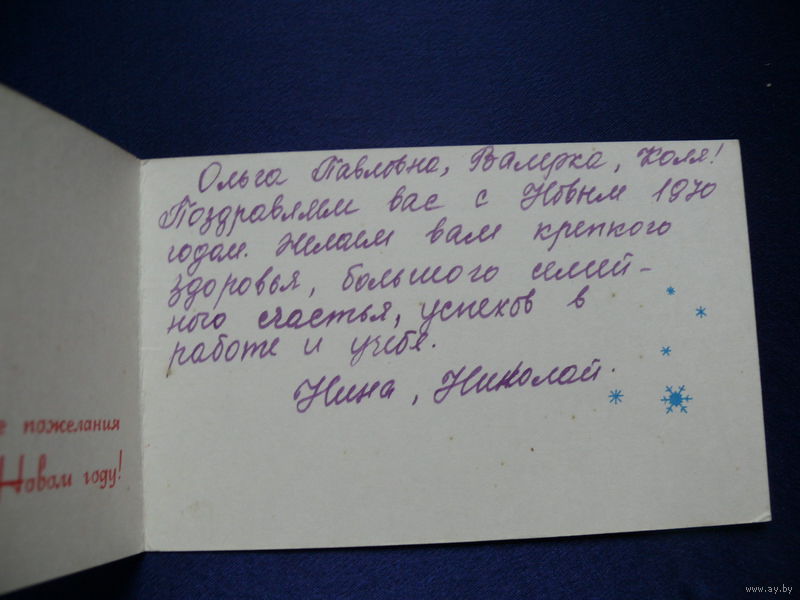 Ольга Павловна, Валерка, Коля!
Поздравляем вас с Новым 1970
годом. Желаем вам крепкого
здоровья, большого семей-
ного счастья, успехов в
работе и учебе.
Нина, Николай.
е пожелания
Новом году!
www.ay.by